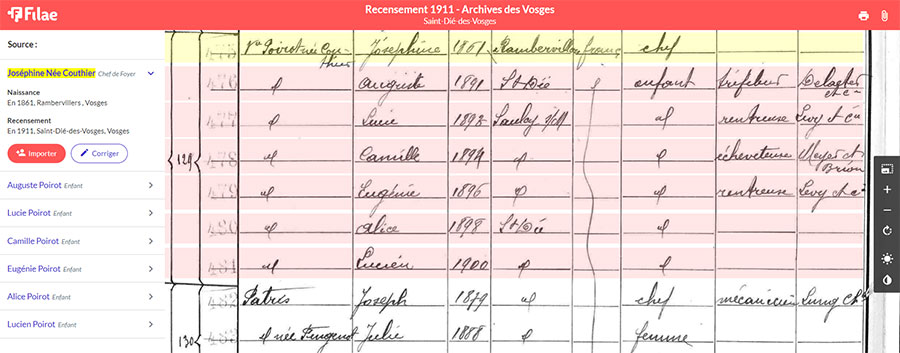 Filae
Recensement 1911 - Archives des Vosges
Saint-Dié-des-Vosges
Source :
Joséphine Née Couthier Chef de Foyer
Naissance
En 1861, Rambervillers , Vosges
Recensement
En 1911, Saint-Dié-des-Vosges, Vosges
Importer
Corriger
Auguste Poirot Enfant
Lucie Poirot Enfant
Camille Poirot Enfant
Eugénie Poirot Enfant
Alice Poirot Enfant
Lucien Poirot Enfant
475 Vve Poirot née Cou- Joséphine 1861 Rambervillers franç chef
thier
476 d Auguste 1891 St Dié d enfant tréfileur
477 d Lucie 1892 Saulcy s/M d rentreuse Levy et Cie
129 478 d Camille 1894 d d écheveteuse Meyer et
479 d Eugénie 1896 d d rentreuse Levy et Cie
480 d Alice 1898 St Dié d
481 d Lucien 1900 d d
482 Patris Joseph 1879 d chef mécanicien
130 483 d née Julie 1888 d femme